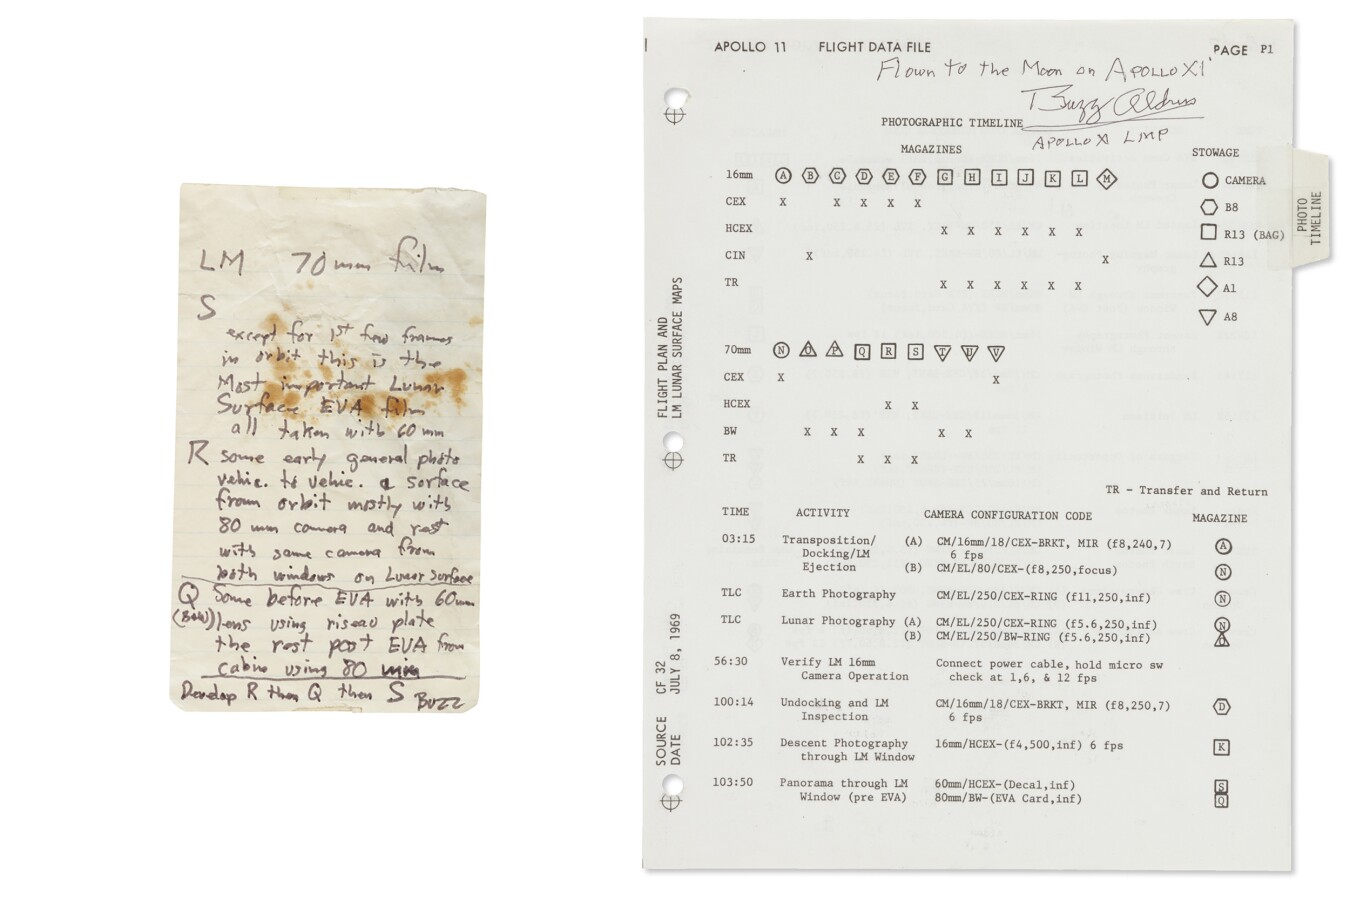 LM 70 mm film
S
except for 1st few frames
in orbit this is the
Most important Lunar
Surface EVA film
all taken with 60 mm
R some early general photo
vehic. to vehic. & surface
from orbit mostly with
80 mm camera and rest
with same camera from
both windows on Lunar Surface
Q Some before EVA with 60mm
(B&W) lens using riseau plate
the rest post EVA from
cabin using 80 mm
Develop R then Q then S BUZZ
APOLLO 11 FLIGHT DATA FILE PAGE P1
Flown to the Moon on APOLLO XI
Buzz Aldrin
PHOTOGRAPHIC TIMELINE
APOLLO XI LMP
MAGAZINES
STOWAGE
16mm A B C D E F G H I J K L M
CEX X X X X X
HCEX X X X X X X
CIN X X
TR X X X X X X
CAMERA
B8
R13 (BAG)
R13
A1
A8
PHOTO
TIMELINE
70mm N O P Q R S T U V
CEX X X
HCEX X X
BW X X X X X
TR X X X
TR - Transfer and Return
TIME ACTIVITY CAMERA CONFIGURATION CODE MAGAZINE
03:15 Transposition/ (A) CM/16mm/18/CEX-BRKT, MIR (f8,240,7) A
Docking/LM 6 fps
Ejection (B) CM/EL/80/CEX-(f8,250,focus) N
TLC Earth Photography CM/EL/250/CEX-RING (f11,250,inf) N
TLC Lunar Photography (A) CM/EL/250/CEX-RING (f5.6,250,inf) N
(B) CM/EL/250/BW-RING (f5.6,250,inf) O
56:30 Verify LM 16mm Connect power cable, hold micro sw
Camera Operation check at 1,6, & 12 fps
100:14 Undocking and LM CM/16mm/18/CEX-BRKT, MIR (f8,250,7) D
Inspection 6 fps
102:35 Descent Photography 16mm/HCEX-(f4,500,inf) 6 fps K
through LM Window
103:50 Panorama through LM 60mm/HCEX-(Decal,inf) S
Window (pre EVA) 80mm/BW-(EVA Card,inf) Q
FLIGHT PLAN AND
LM LUNAR SURFACE MAPS
SOURCE CF 32
DATE JULY 8, 1969